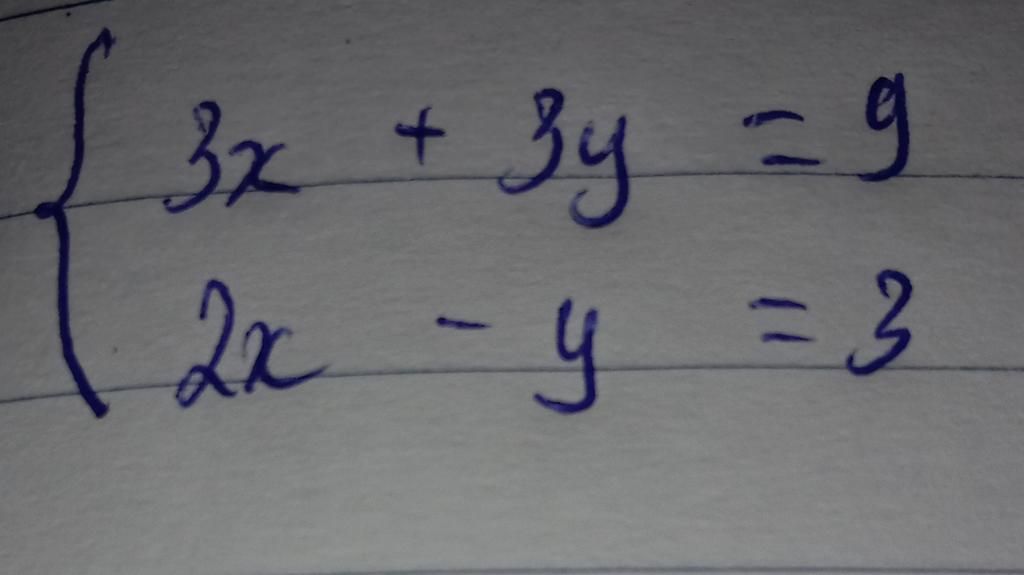 3x + 3y = 9
2x - y = 3